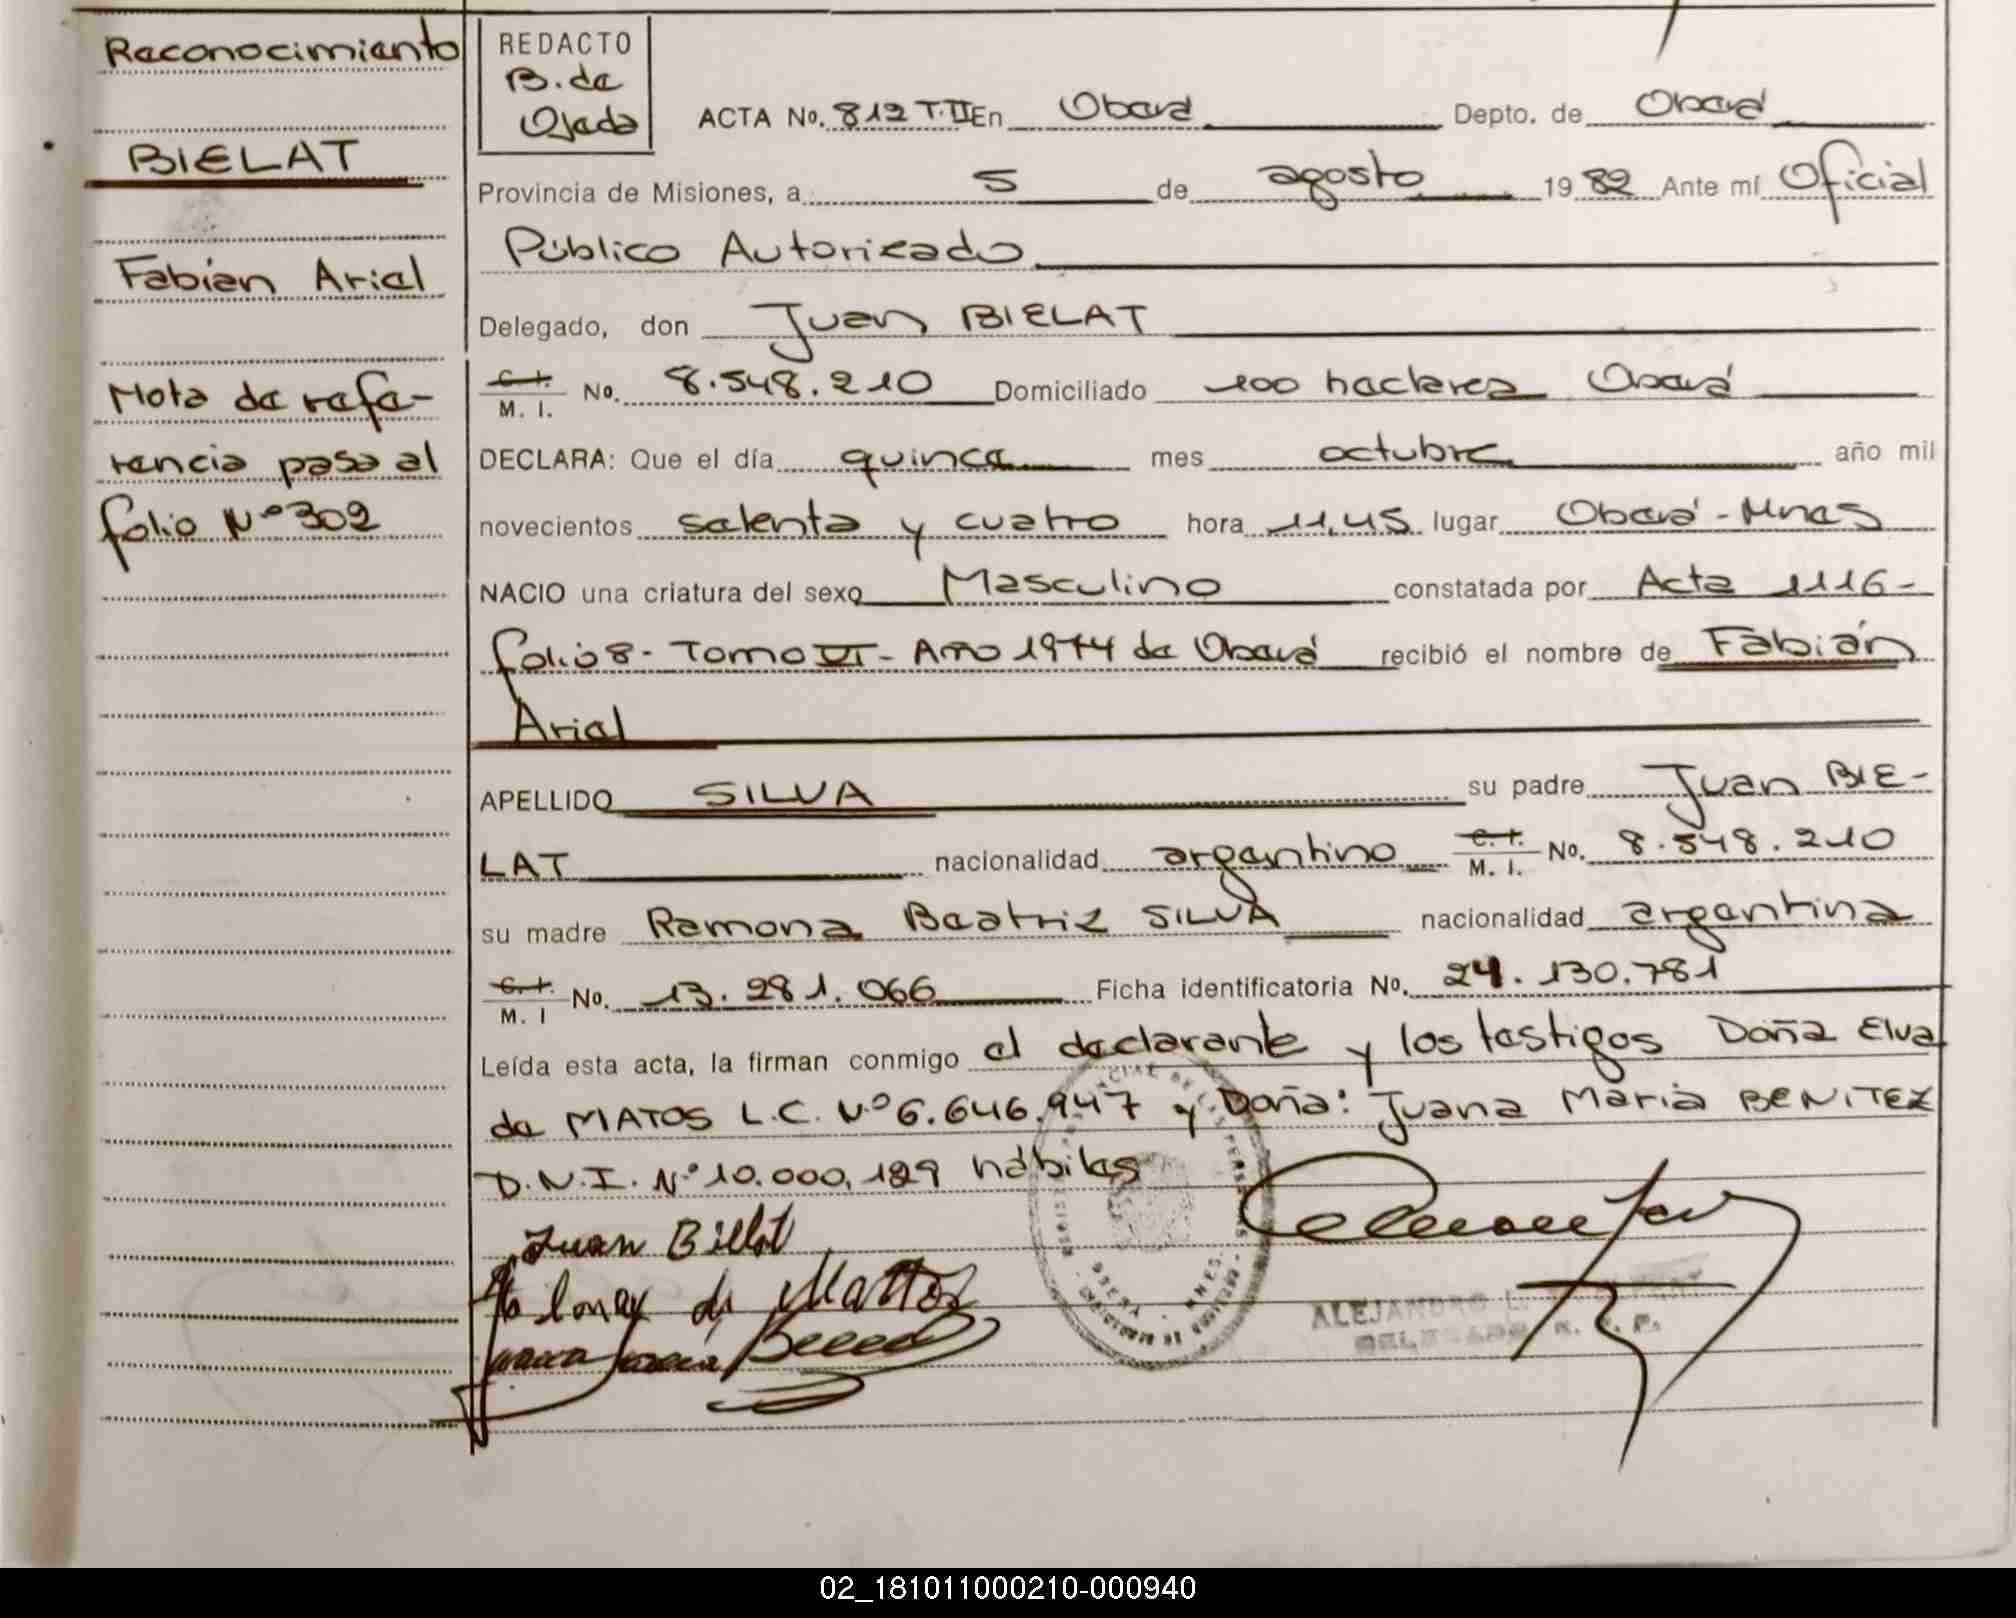 Reconocimiento
BIELAT
Fabián Ariel
Nota de refe-
rencia pasa al
folio Nº 302
REDACTO
B. de
Ojeda
ACTA No. 812 T.II En Oberá Depto. de Oberá
Provincia de Misiones, a 5 de agosto 1982 Ante mí Oficial
Público Autorizado
Delegado, don Juan BIELAT
C. I. M. I. No. 8.548.210 Domiciliado 100 hectareas Oberá
DECLARA: Que el día quince mes octubre año mil
novecientos setenta y cuatro hora 11,45 lugar Oberá - Mnes
NACIO una criatura del sexo Masculino constatada por Acta 1116-
folio 8- Tomo VI- Año 1974 de Oberá recibió el nombre de Fabián
Ariel
APELLIDO SILVA su padre Juan BIE-
LAT nacionalidad argentino C. I. M. I. No. 8.548.210
su madre Ramona Beatriz SILVA nacionalidad argentina
C. I. M. I No. 13.281.066 Ficha identificatoria No. 24.130.781
Leída esta acta, la firman conmigo el declarante y los testigos Doña Elva
de MATOS L.C. Nº 6.646.947 y Doña: Juana Maria BENITEZ
D.N.I. Nº 10.000.189 hábiles
Juan Bielat
de Mattos
ALEJANDRO L.
DELEGADO R. P.
02_181011000210-000940